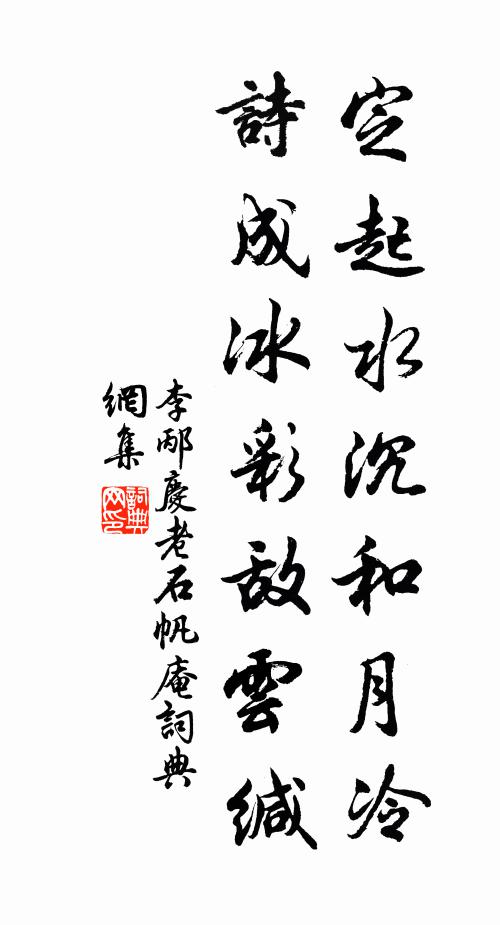 定起水沉和月冷
詩成冰彩敌雲缄
李邴慶老石帆庵詞典
網集
詞典
网印